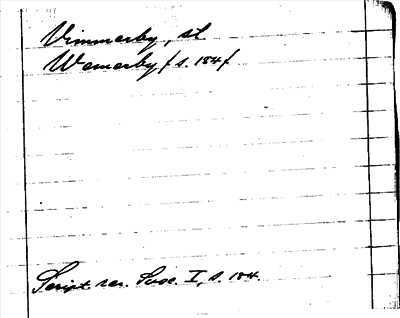 Vimmerby, st
Wemerby (s. 184)
Script. rer. Svec. I, s. 184.